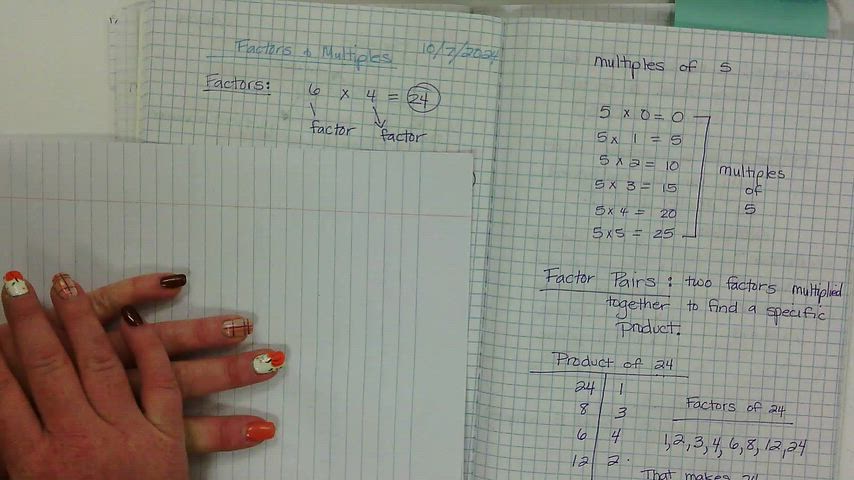 Factors & Multiples 10/7/2024
Factors: 6 x 4 = 24
factor factor
multiples of 5
5 x 0 = 0
5 x 1 = 5
5 x 2 = 10
5 x 3 = 15
5 x 4 = 20
5 x 5 = 25
multiples
of
5
Factor Pairs: two factors multiplied
together to find a specific
product.
Product of 24
24 1
8 3
6 4
12 2
Factors of 24
1, 2, 3, 4, 6, 8, 12, 24
That makes 24